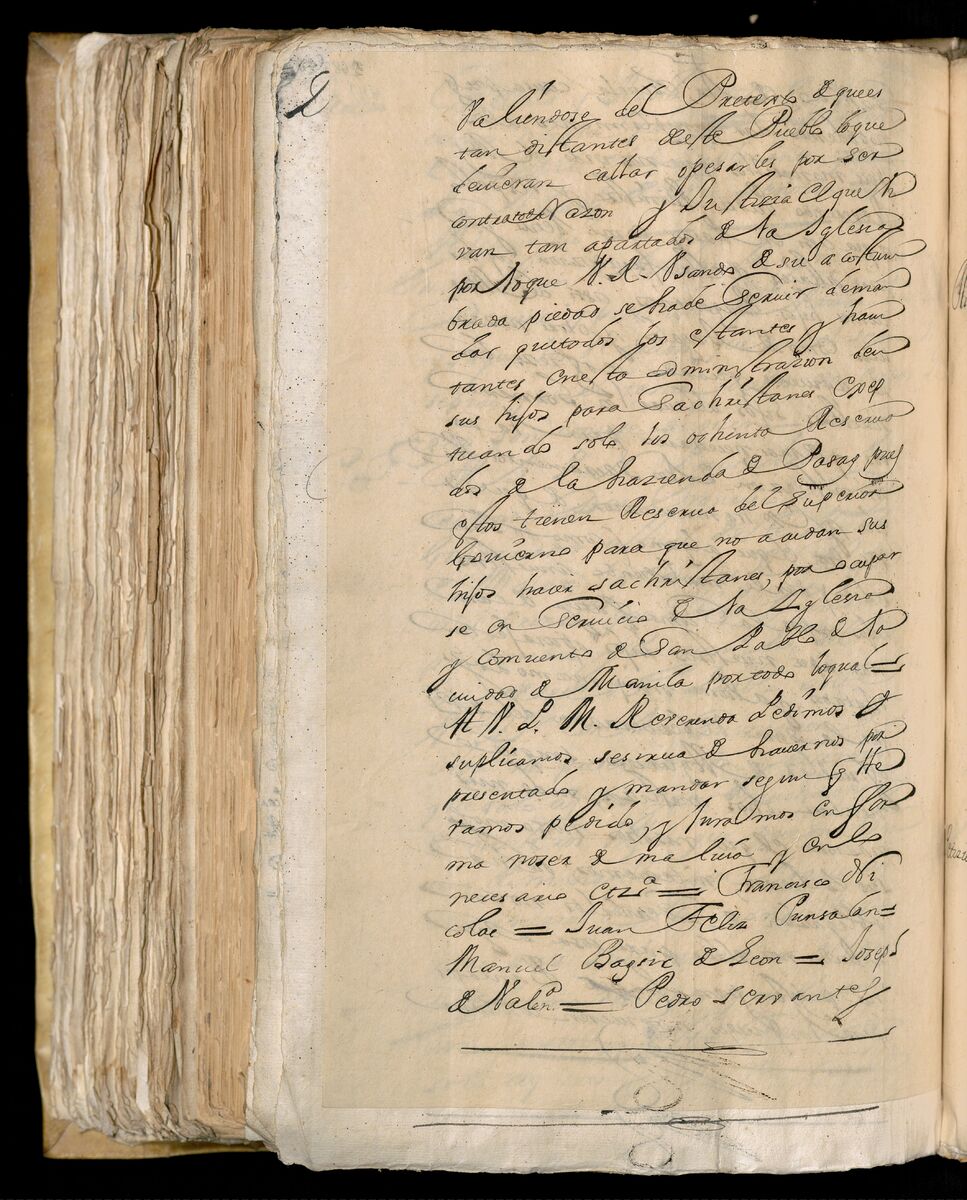 Valiendose del Pretexto de que es
tan distantes deste Pueblo loque
deuieran callar opesarles por ser
contra toda Razon y Justizia El que Vi
van tan apartados de la Yglesia
por loque V. R. Vsando de su acostum
brada piedad se ha de Seruir deman
dar que todos los estantes y haui
tantes en esta administrazion den
sus hijos para Sachristanes Exep
tuando solo los ochenta Reserua
dos de la hazienda de Pasay pues
estos tienen Reserua del Superior
Gouierno para que no acudan sus
hijos hacer sachristanes, por ocupar
se en Seruicio de la Yglesia
y Comuento de San Pablo de la
ciudad de Manila por todo loqual =
A V. P. M. Reverenda Pedimos y
suplicamos se sirua de hauernos por
presentado y mandar segun q lle
vamos pedido, y Juramos en for
ma no ser de malicia y en lo
necesario etza = Francisco Ni
colas = Juan Feliz Punsalan =
Manuel Bagsic de Leon = Joseph
de Valena = Pedro Servantes